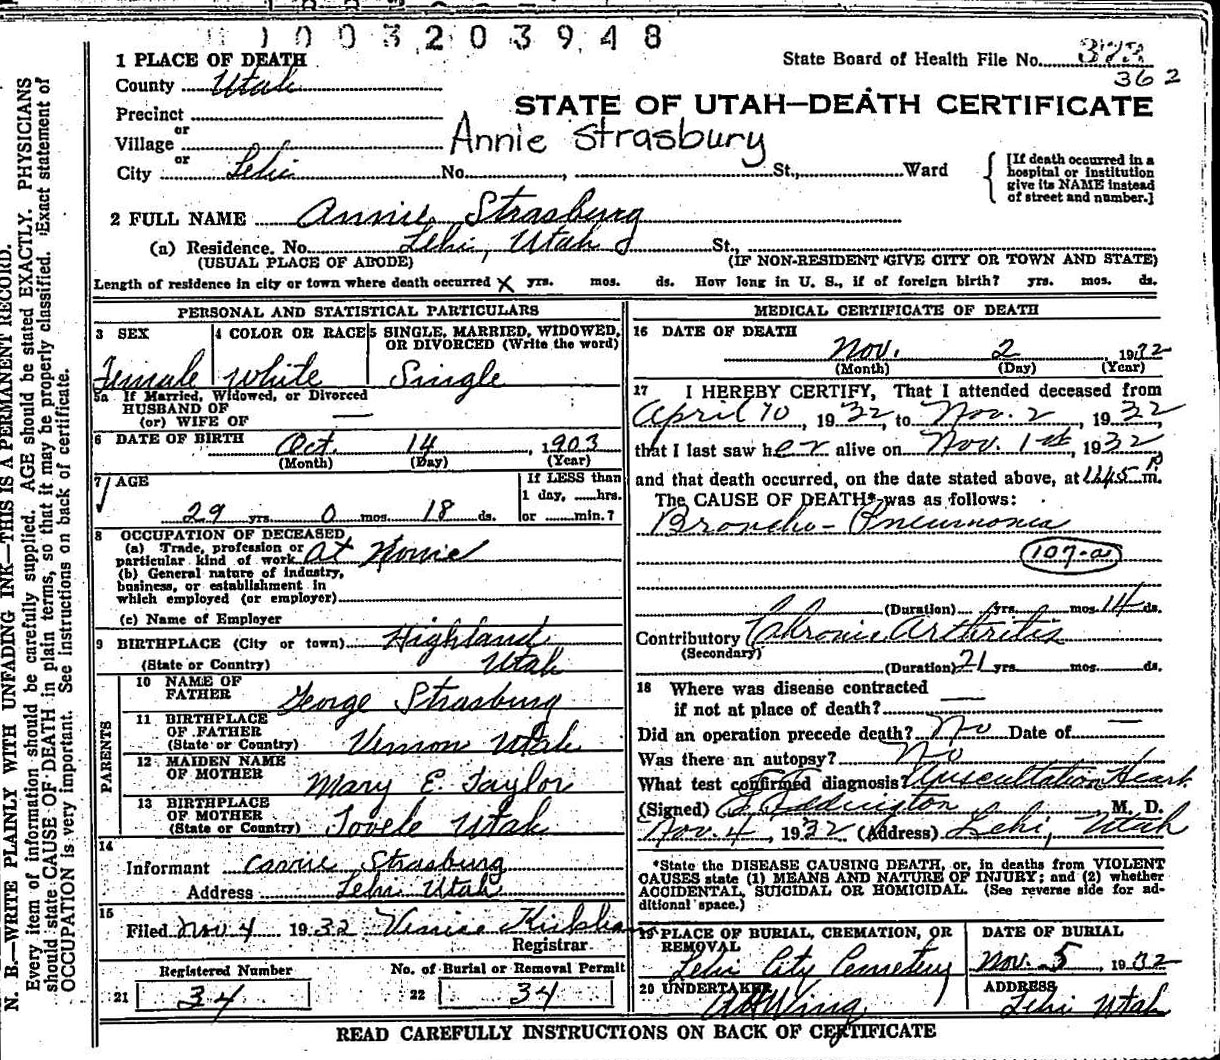 1003203948
1 PLACE OF DEATH
State Board of Health File No. 373
362
County Utah
STATE OF UTAH—DEATH CERTIFICATE
Precinct
or
Village
Annie Strasbury
or
City Lehi No. , St., Ward
[If death occurred in a
hospital or institution
give its NAME instead
of street and number.]
2 FULL NAME Annie Strasburg
(a) Residence. No. Lehi, Utah St.,
(USUAL PLACE OF ABODE) (IF NON-RESIDENT GIVE CITY OR TOWN AND STATE)
Length of residence in city or town where death occurred X yrs. mos. ds. How long in U. S., if of foreign birth? yrs. mos. ds.
PERSONAL AND STATISTICAL PARTICULARS
3 SEX
Female
4 COLOR OR RACE
White
5 SINGLE, MARRIED, WIDOWED,
OR DIVORCED (Write the word)
Single
5a If Married, Widowed, or Divorced
HUSBAND OF
(or) WIFE OF —
6 DATE OF BIRTH Oct. 14, 1903
(Month) (Day) (Year)
7 AGE
29 yrs. 0 mos. 18 ds.
If LESS than
1 day, ......hrs.
or ......min.?
8 OCCUPATION OF DECEASED
(a) Trade, profession or
particular kind of work At Home
(b) General nature of industry,
business, or establishment in
which employed (or employer)
(c) Name of Employer
9 BIRTHPLACE (City or town) Highland
(State or Country) Utah
PARENTS
10 NAME OF
FATHER George Strasburg
11 BIRTHPLACE
OF FATHER
(State or Country) Vernon Utah
12 MAIDEN NAME
OF MOTHER Mary E. Taylor
13 BIRTHPLACE
OF MOTHER
(State or Country) Tooele Utah
14
Informant Carrie Strasburg
Address Lehi Utah
15
Filed Nov 4 1932
Registrar.
Registered Number
21 34
No. of Burial or Removal Permit
22 34
MEDICAL CERTIFICATE OF DEATH
16 DATE OF DEATH
Nov. 2, 1932
(Month) (Day) (Year)
17 I HEREBY CERTIFY, That I attended deceased from
April 10, 1932, to Nov. 2, 1932,
that I last saw her alive on Nov. 1st, 1932
and that death occurred, on the date stated above, at P m.
The CAUSE OF DEATH* was as follows:
Broncho-Pneumonia
107-a
(Duration) yrs. mos. 14 ds.
Contributory Chronic Arthritis
(Secondary)
(Duration) 21 yrs. mos. ds.
18 Where was disease contracted
if not at place of death? —
Did an operation precede death? No Date of —
Was there an autopsy? No
What test confirmed diagnosis? Auscultation Heart
(Signed) Eddington, M. D.
Nov. 4, 1932 (Address) Lehi, Utah
*State the DISEASE CAUSING DEATH, or, in deaths from VIOLENT
CAUSES state (1) MEANS AND NATURE OF INJURY; and (2) whether
ACCIDENTAL, SUICIDAL OR HOMICIDAL. (See reverse side for ad-
ditional space.)
19 PLACE OF BURIAL, CREMATION, OR
REMOVAL
Lehi City Cemetery
DATE OF BURIAL
Nov. 5, 1932
20 UNDERTAKER
Wing
ADDRESS
Lehi Utah
READ CAREFULLY INSTRUCTIONS ON BACK OF CERTIFICATE
N. B.—WRITE PLAINLY WITH UNFADING INK—THIS IS A PERMANENT RECORD.
Every item of information should be carefully supplied. AGE should be stated EXACTLY. PHYSICIANS
should state CAUSE OF DEATH in plain terms, so that it may be properly classified. Exact statement of
OCCUPATION is very important. See instructions on back of certificate.